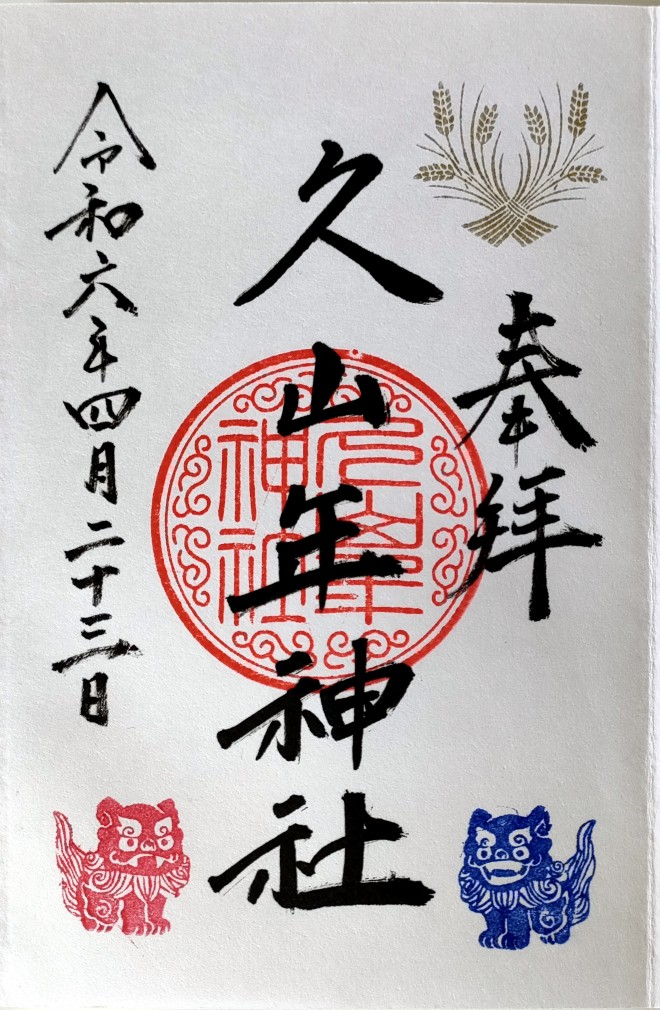 奉拝
久山年神社
久山年神社
令和六年四月二十三日